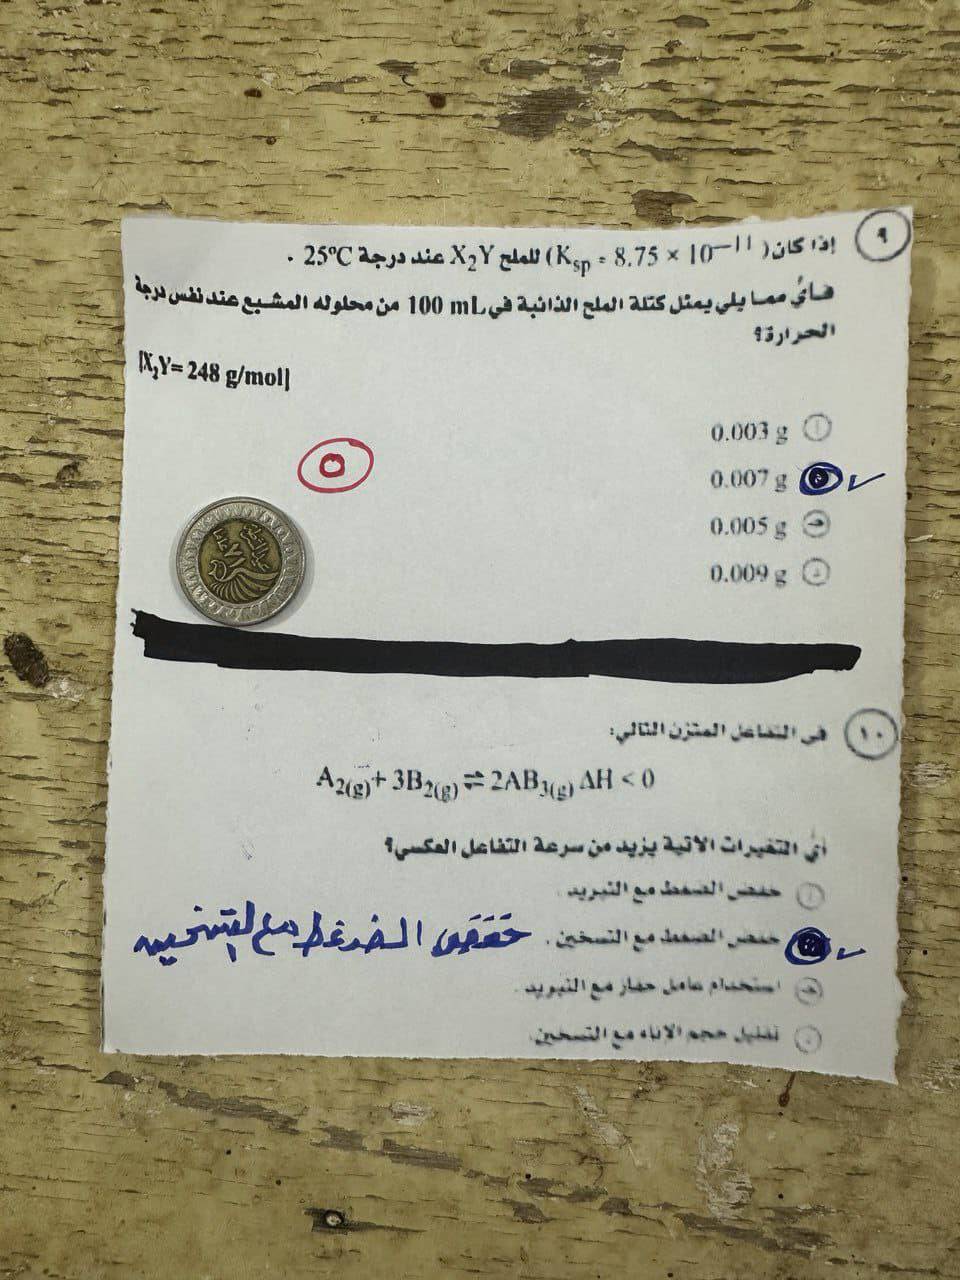 ٩ إذا كان (Ksp = 8.75 × 10⁻¹¹) للملح X₂Y عند درجة 25ºC .
فأي مما يلي يمثل كتلة الملح الذائبة في 100 mL من محلوله المشبع عند نفس درجة
الحرارة؟
[X₂Y= 248 g/mol]
أ 0.003 g
0.007 g
ج 0.005 g
د 0.009 g
١٠ في التفاعل المتزن التالي:
A₂(g) + 3B₂(g) ⇌ 2AB₃(g) ΔH < 0
أي التغيرات الآتية يزيد من سرعة التفاعل العكسي؟
أ خفض الضغط مع التبريد
خفض الضغط مع التسخين . خفض الضغط مع التسخين
ج استخدام عامل حفاز مع التبريد.
تقليل حجم الإناء مع التسخين.